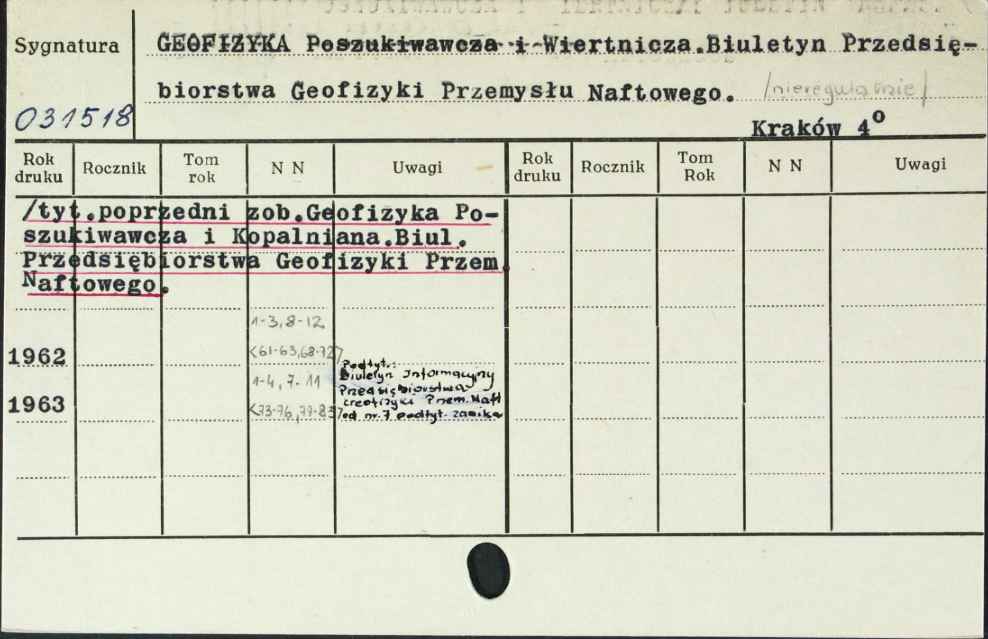 Sygnatura
GEOFIZYKA Poszukiwawcza i Wiertnicza.Biuletyn Przedsię-
biorstwa Geofizyki Przemysłu Naftowego. /nieregularnie/
031518
Kraków 4°
Rok druku Rocznik Tom rok N N Uwagi Rok druku Rocznik Tom Rok N N Uwagi
/tyt.poprzedni zob.Geofizyka Po-
szukiwawcza i Kopalniana.Biul.
Przedsiębiorstwa Geofizyki Przem.
Naftowego.
1-3, 8-12
1962 <61-63, 68-72>
Podtyt.:
Biuletyn Informacyjny
1-4, 7-11
Przedsiębiorstwa
Geofizyki Przem. Naft
1963 <73-76, 79-83>
od nr. 7 podtyt. zanika